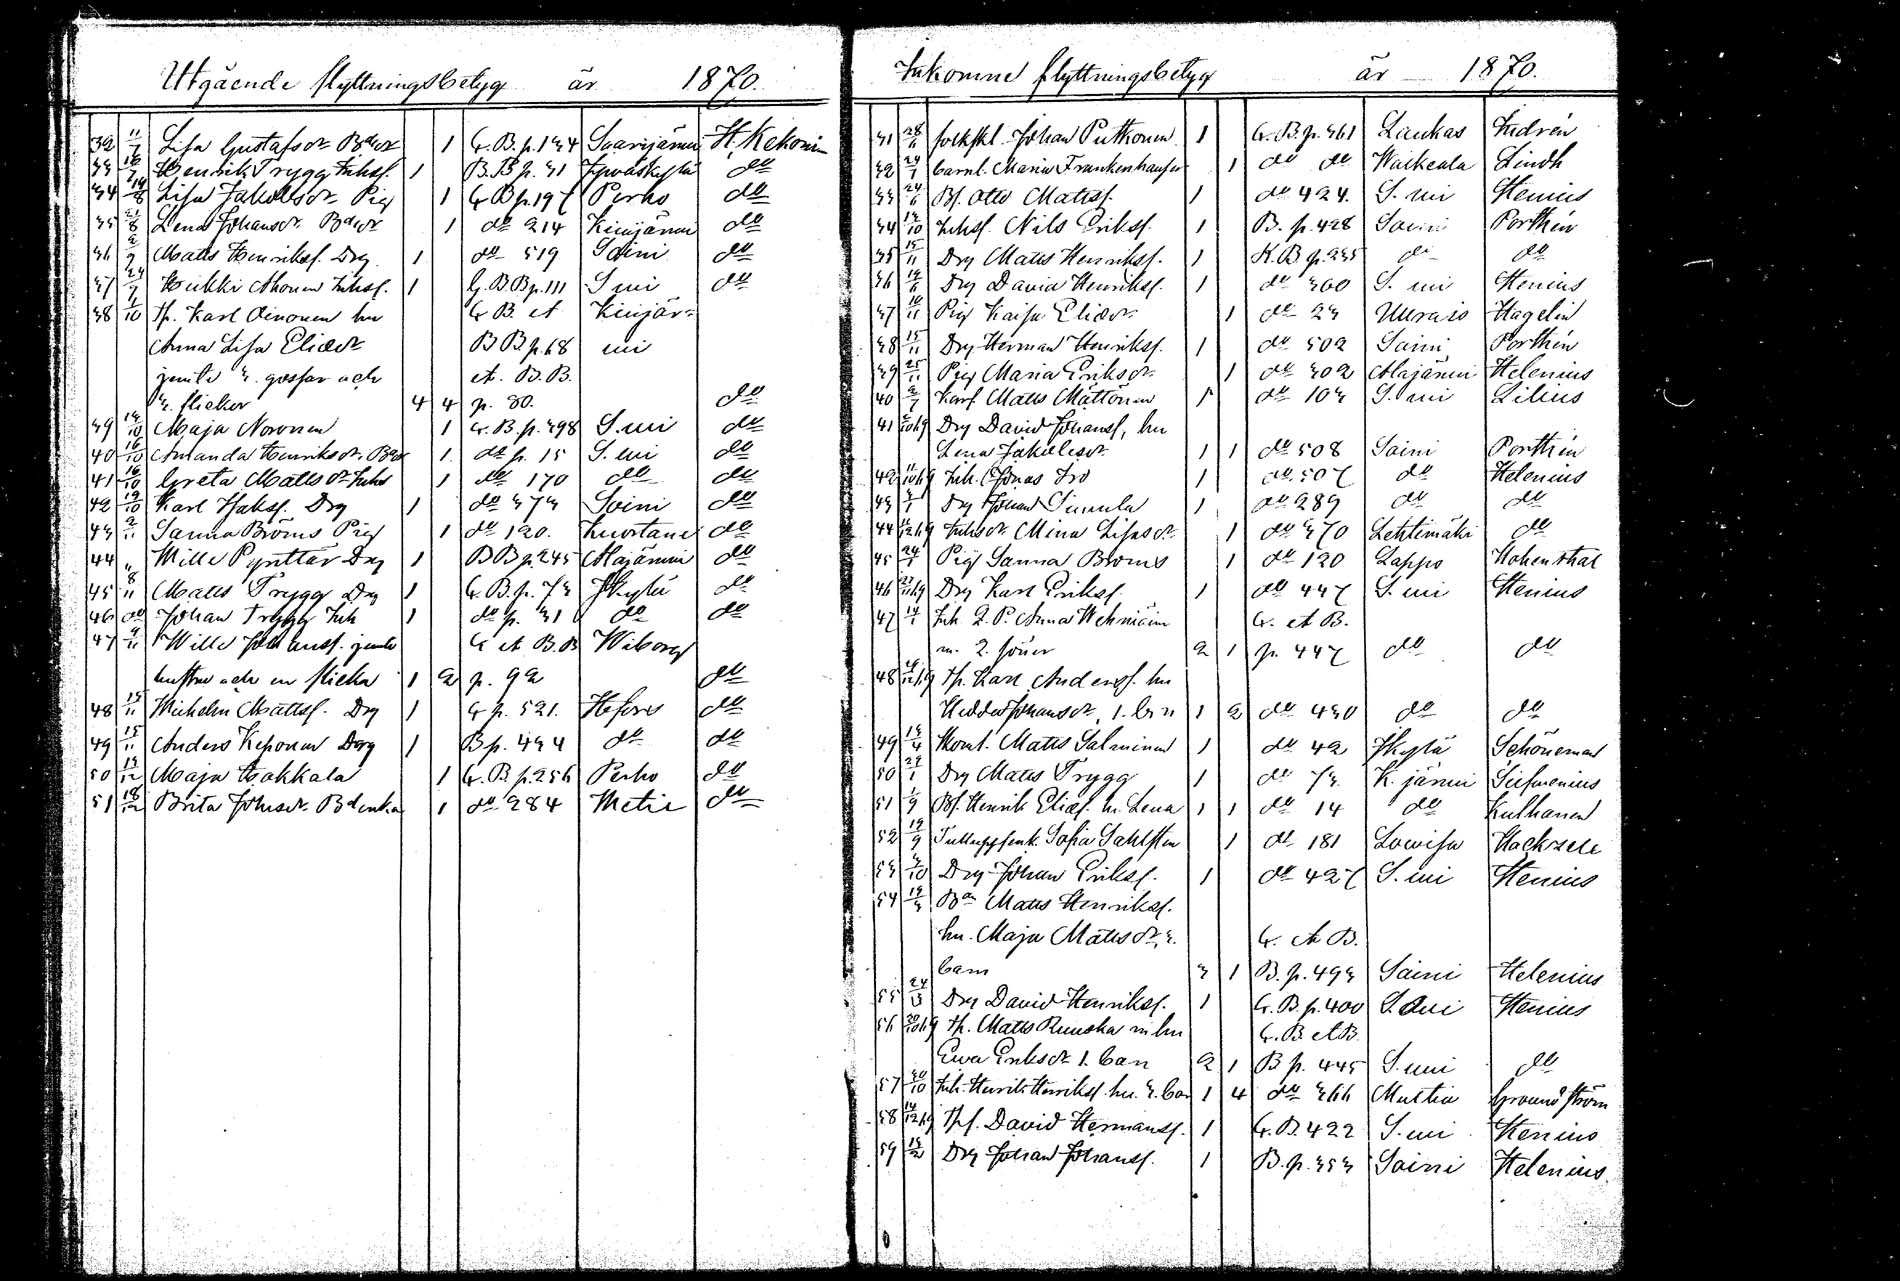 Utgående flyttningsbetyg år 1870.
32 11/7 Lisa Gustafsdr Bddr 1 G.B.p.134 Saarijärvi H. Kekonin
33 18/7 Henrik Trygg Inhs. 1 B.B.p.31 Jyväskylä do
34 14/8 Lisa Jakobsdr Pig 1 G.B.p.197 Perho do
35 21/8 Lena Johansdr Bddr 1 do 214 Kivijärvi do
36 2/9 Matts Henrikss. Drg 1 do 519 Soini do
37 24/9 Heikki Ahonen Inhs. 1 G.B.B.p.111 S. vi do
38 1/10 Tp. Karl Oinonen hu G.B. et Kivijär-
Anna Lisa Eliaedr B.B.p.68 vi
jemte 3. gossar och et. B.B.
3. flickor 4 4 p. 80. do
39 14/10 Maja Noronen 1 G.B.p.398 S.vi do
40 16/10 Amanda Henriksdr Bddr 1 do p. 15 S.vi do
41 16/10 Greta Mattsdr Inhs 1 do 170 do do
42 19/10 Karl Isakss. Drg 1 do 373 Soini do
43 2/11 Sanna Broms Pig 1 do 120. Kuortane do
44 " Wille Pynttär Drg 1 B.B.p.245 Alajärvi do
45 8/11 Matts Trygg Drg 1 G.B.p.73 Jkylä do
46 do Johan Trygg Inh 1 do p. 31 do do
47 9/11 Wille Johanss. jemte G et B.B Wiborg
hustru och en flicka 1 2 p. 92 do
48 15/11 Wilhelm Mattss. Drg 1 G p. 521. Hfors do
49 15/11 Anders Keponen Drg 1 B p. 434 do do
50 14/12 Maja Kokkala 1 G.B.p.256 Perho do
51 18/12 Brita Johsdr Bdenka 1 do 284 Metie do
Inkomne flyttningsbetyg år 1870.
31 28/6 folkskl. Johan Putkonen 1 G.B.p.361 Laukas Indrén
32 24/7 barnl. Maria Frankenhauser 1 do do Walkeala Lindh
33 24/6 Bs. Otto Mattss. 1 do 424. S. vi Stenius
34 14/10 Inhs. Nils Erikss. 1 B. p. 428 Soini Porthén
35 15/11 Drg Matts Henrikss. 1 K.B.p.235 do do
36 14/6 Drg David Henrikss. 1 do 360 S. vi Stenius
37 10/11 Pig Kaisa Eliaedr 1 do 23 Uurais Hagelin
38 15/11 Drg Herman Henrikss. 1 do 502 Soini Porthén
39 25/11 Pig Maria Eriksdr 1 do 302 Alajärvi Helenius
40 9/7 Karl Matts Mattönen 1 do 103 S. vi Lilius
41 5/10 69 Drg David Johanss, hu
Lena Jakobsdr 1 1 do 508 Soini Porthén
42 11/10 69 Inh. Jonas Iro 1 do 507 do Helenius
43 3/1 Drg Johan Simula 1 do 289 do do
44 11/12 69 Inhsdr Mina Lisasdr 1 do 370 Lehtimäki do
45 24/5 Pig Sanna Broms 1 do 120 Lappo Hohenthal
46 22/11 69 Drg Karl Erikss. 1 do 447 S. vi Stenius
47 14/1 Inh. Q.P. Anna Wehniäin G. et B.
m. 2. söner 2 1 p. 447 do do
48 19/12 69 Tp. Karl Anderss. hu
Hedda Johansdr, 1. barn 1 2 do 430 do do
49 13/4 Koml. Matts Salminen 1 do 42 Jkylä Schöneman
50 27/1 Drg Matts Trygg 1 do 73. K. järvi Siefvenius
51 1/9 Bs. Henrik Eliass. h. Lena 1 1 do 14 do Kulhanen
52 19/9 Sofia Sahlsten 1 do 181 Lowisa Hackzell
53 3/10 Drg Johan Erikss. 1 do 427 S. vi Stenius
54 14/3 Bon Matts Henrikss.
hu. Maja Mattsdr, 3. G. et B.
barn 3 1 B. p. 493 Soini Helenius
55 24/3 Drg David Henrikss. 1 G.B.p.400 S. vi Stenius
56 20/10 69 Tp. Matts Ruuska m. hu G.B. et B.
Ewa Eriksdr 1. barn 2 1 B p. 445 S.vi do
57 30/10 Inh. Henrik Henrikss. hu. 3. barn 1 4 do 366 Multia Grounström
58 14/12 69 Tps. David Hermanss. 1 G.B. 422 S. vi Stenius
59 15/2 Drg Johan Johanss. 1 B. p. 353 Soini Helenius.